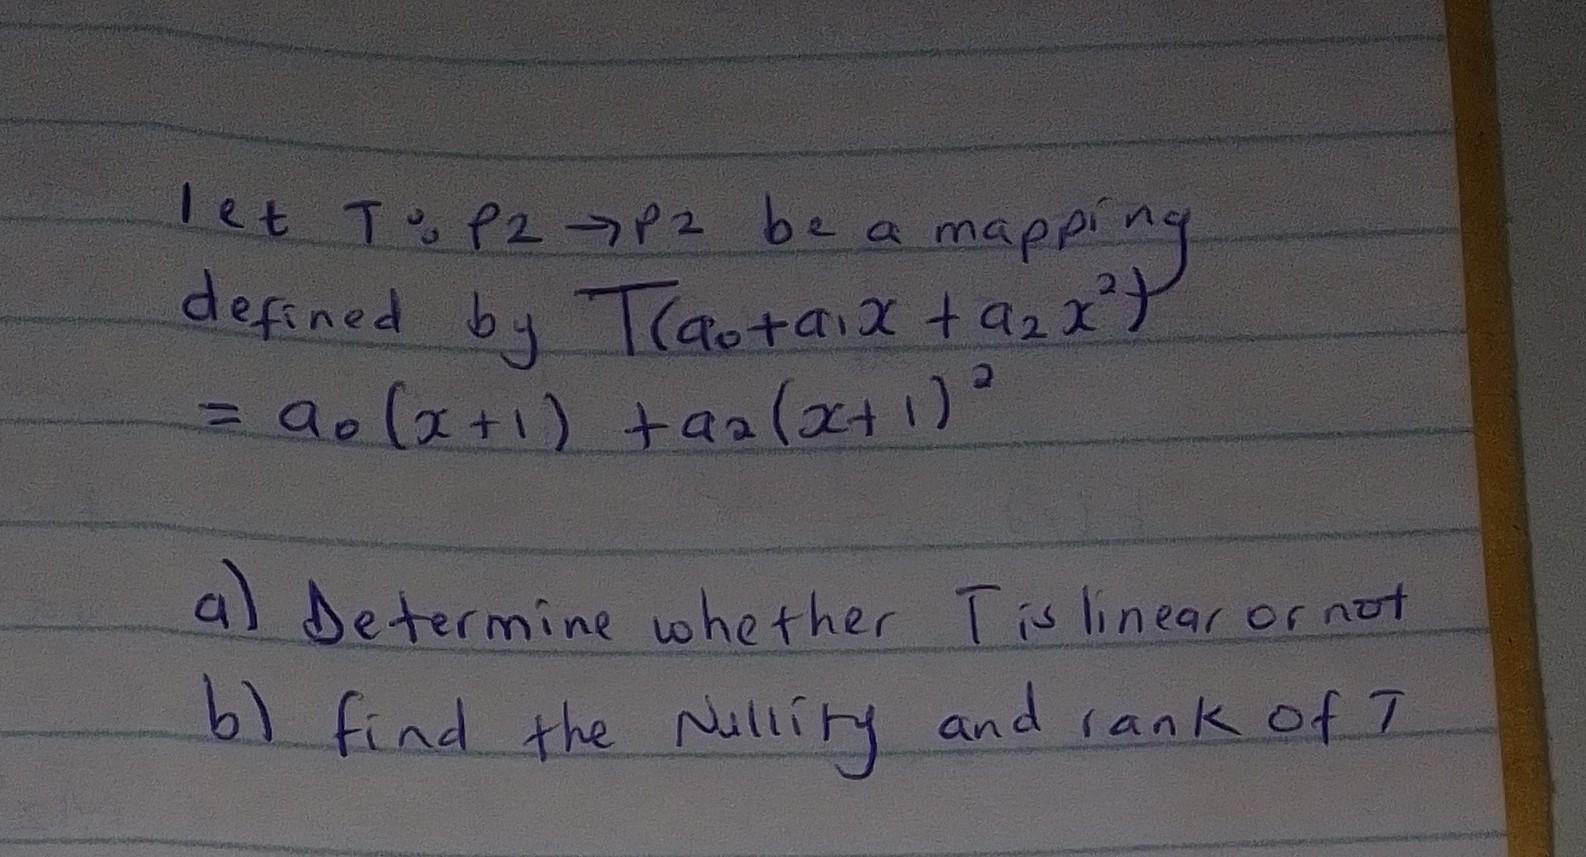 let T: P2 → P2 be a mapping
defined by T(a₀+a₁x + a₂x²)
= a₀(x+1) + a₂(x+1)²
a) Determine whether T is linear or not
b) find the Nullity and rank of T